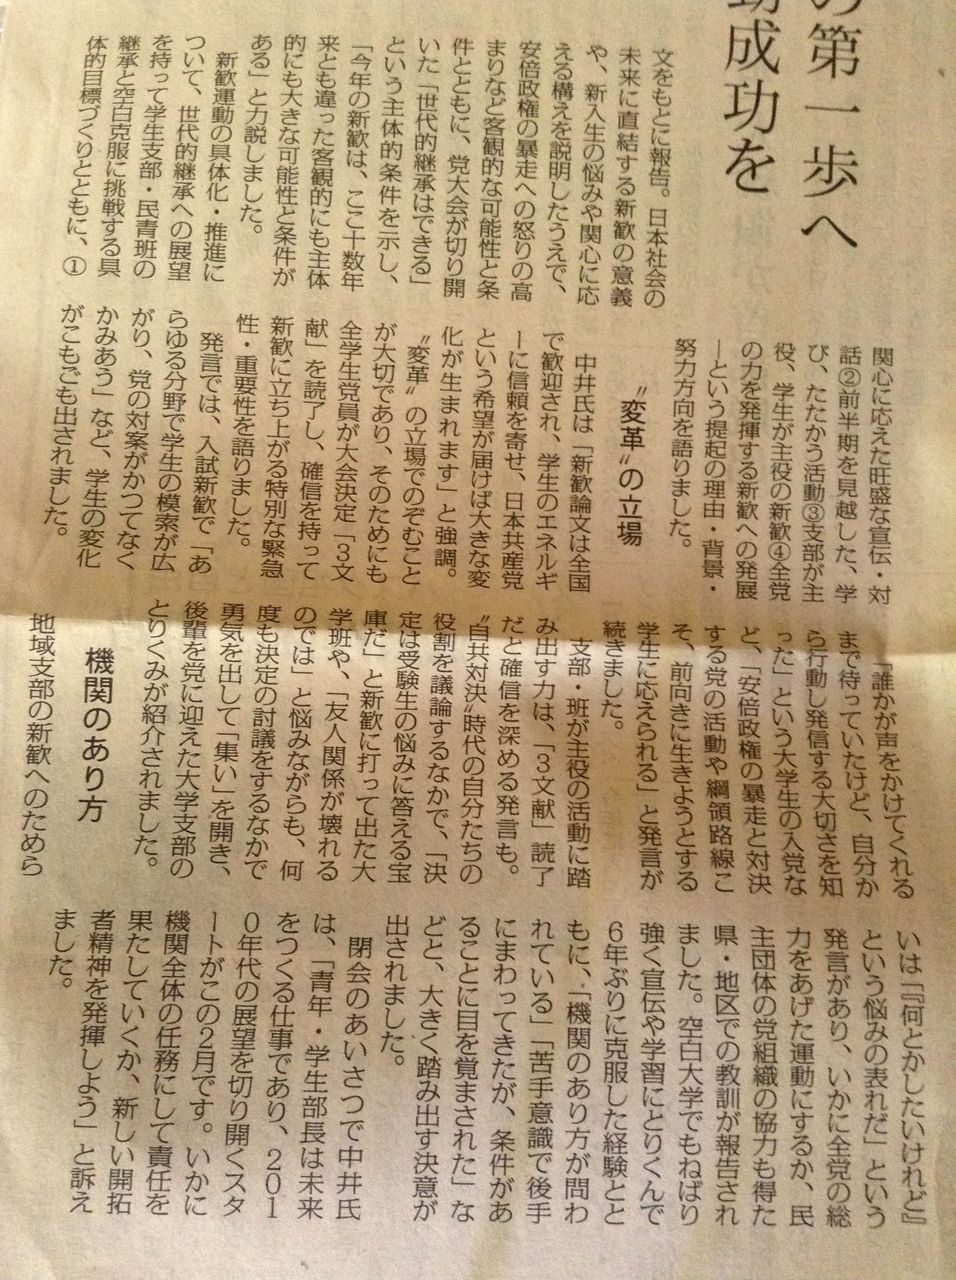 の第一歩へ
動成功を
文をもとに報告。日本社会の
未来に直結する新歓の意義
や、新入生の悩みや関心に応
える構えを説明したうえで、
安倍政権の暴走への怒りの高
まりなど客観的な可能性と条
件とともに、党大会が切り開
いた「世代的継承はできる」
という主体的条件を示し、
「今年の新歓は、ここ十数年
来とも違った客観的にも主体
的にも大きな可能性と条件が
ある」と力説しました。
新歓運動の具体化・推進に
ついて、世代的継承への展望
を持って学生支部・民青班の
継承と空白克服に挑戦する具
体的目標づくりとともに、①
関心に応えた旺盛な宣伝・対
話②前半期を見越した、学
び、たたかう活動③支部が主
役、学生が主役の新歓④全党
の力を発揮する新歓への発展
―という提起の理由・背景・
努力方向を語りました。
〝変革〟の立場
中井氏は「新歓論文は全国
で歓迎され、学生のエネルギ
ーに信頼を寄せ、日本共産党
という希望が届けば大きな変
化が生まれます」と強調。
〝変革〟の立場でのぞむこと
が大切であり、そのためにも
全学生党員が大会決定「3文
献」を読了し、確信を持って
新歓に立ち上がる特別な緊急
性・重要性を語りました。
発言では、入試新歓で「あ
らゆる分野で学生の模索が広
がり、党の対案がかつてなく
かみあう」など、学生の変化
がこもごも出されました。
「誰かが声をかけてくれる
まで待っていたけど、自分か
ら行動し発信する大切さを知
った」という大学生の入党な
ど、「安倍政権の暴走と対決
する党の活動や綱領路線こ
そ、前向きに生きようとする
学生に応えられる」と発言が
続きました。
支部・班が主役の活動に踏
み出す力は、「3文献」読了
だと確信を深める発言も。
〝自共対決〟時代の自分たちの
役割を議論するなかで、「決
定は受験生の悩みに答える宝
庫だ」と新歓に打って出た大
学班や、「友人関係が壊れる
のでは」と悩みながらも、何
度も決定の討議をするなかで
勇気を出して「集い」を開き、
後輩を党に迎えた大学支部の
とりくみが紹介されました。
機関のあり方
地域支部の新歓へのためら
いは「『何とかしたいけれど』
という悩みの表れだ」という
発言があり、いかに全党の総
力をあげた運動にするか、民
主団体の党組織の協力も得た
県・地区での教訓が報告され
ました。空白大学でもねばり
強く宣伝や学習にとりくんで
6年ぶりに克服した経験とと
もに、「機関のあり方が問わ
れている」「苦手意識で後手
にまわってきたが、条件があ
ることに目を覚まされた」な
どと、大きく踏み出す決意が
出されました。
閉会のあいさつで中井氏
は、「青年・学生部長は未来
をつくる仕事であり、201
0年代の展望を切り開くスタ
ートがこの2月です。いかに
機関全体の任務にして責任を
果たしていくか、新しい開拓
者精神を発揮しよう」と訴え
ました。